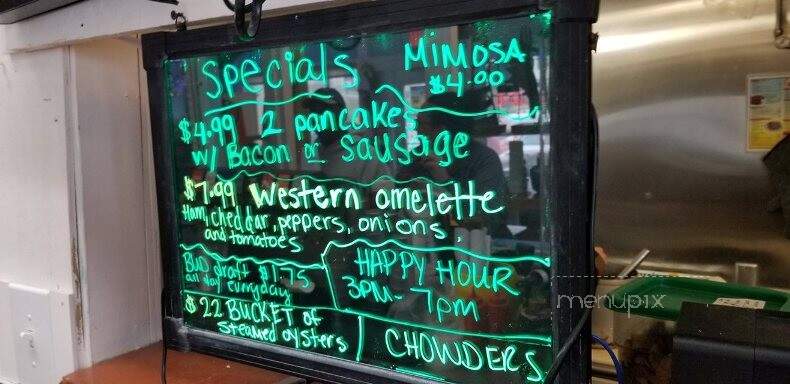 Specials
MIMOSA
$4.00
$4.99 2 pancakes
w/ Bacon or Sausage
$7.99 Western omelette
Ham, cheddar, peppers, onions,
and tomatoes
BUD draft $1.75
all day everyday
HAPPY HOUR
3PM- 7pm
$22 BUCKET of
steamed oysters
CHOWDERS
menupix